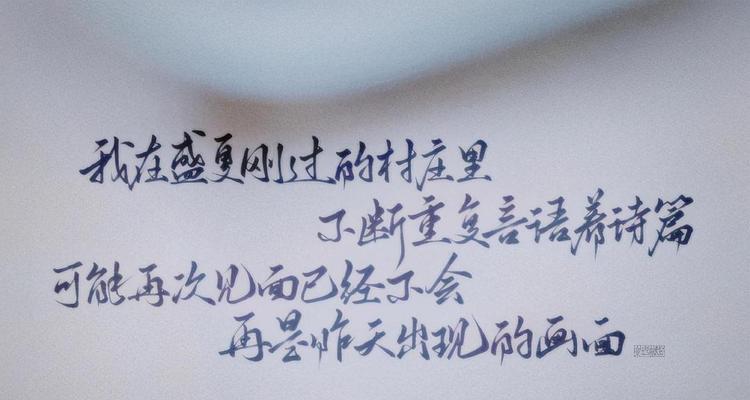 我在盛夏刚过的村庄里
不断重复言语着诗篇
可能再次见面已经不会
再是昨天出现的画面